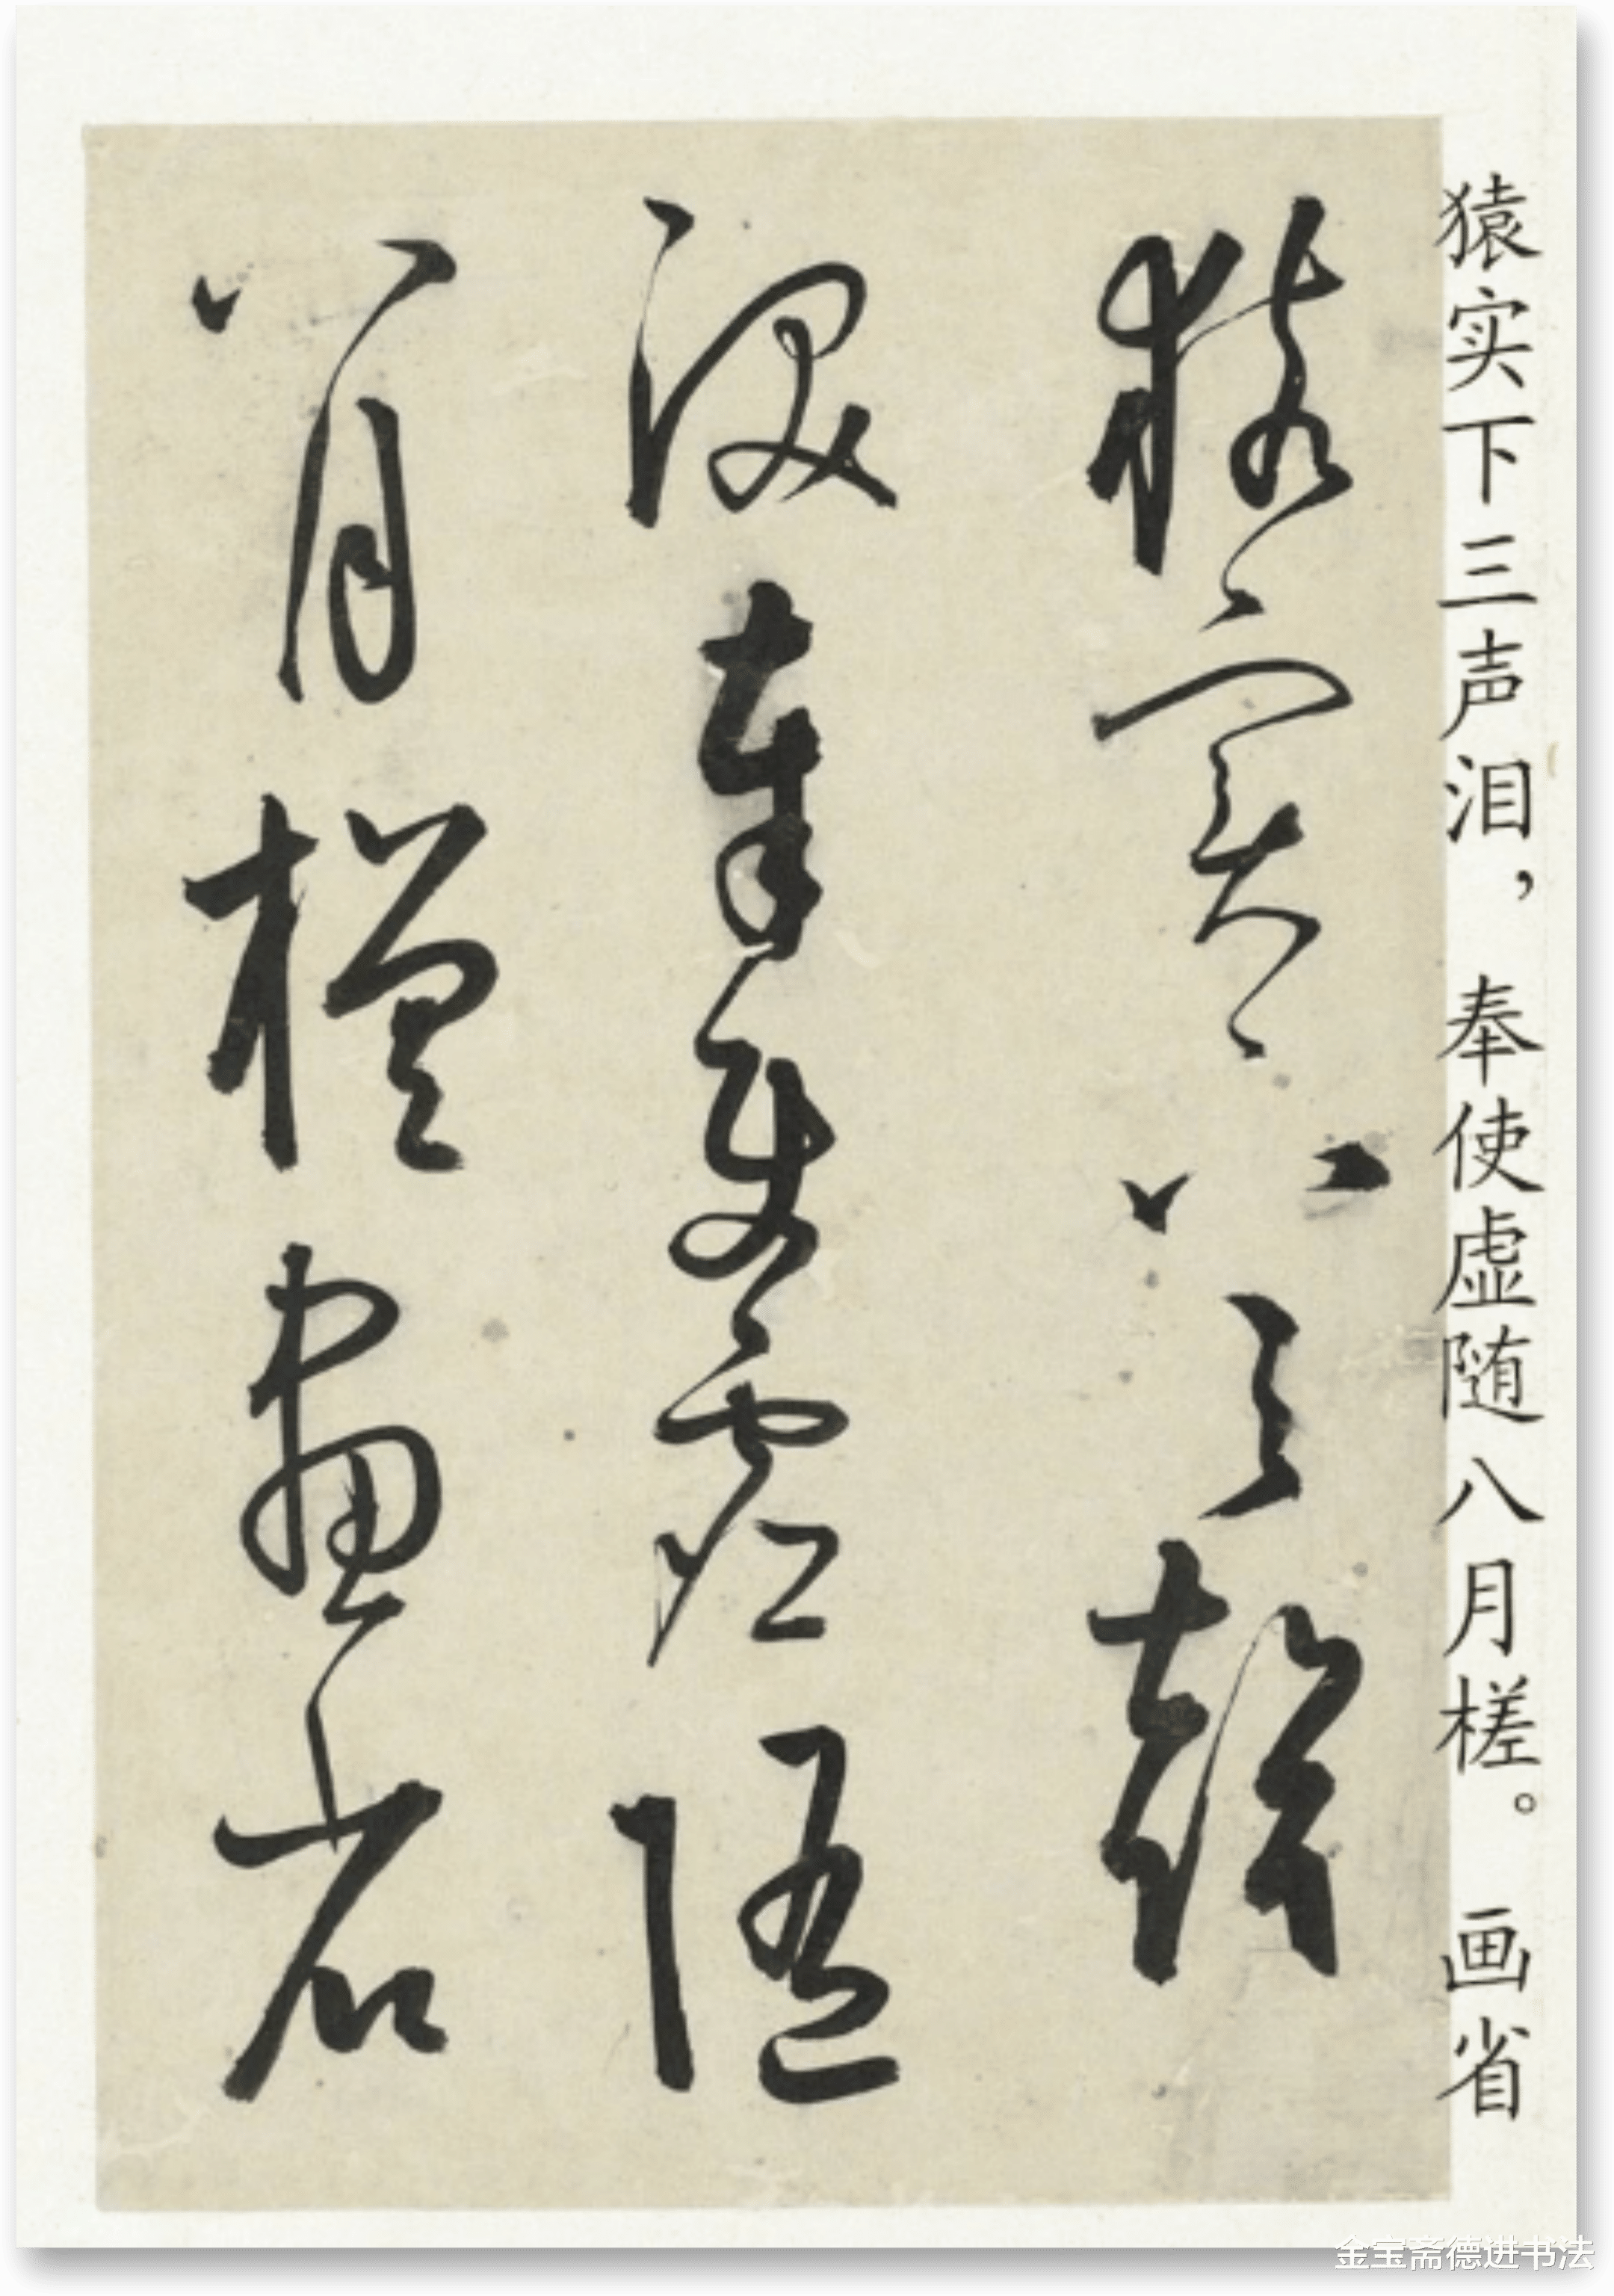 猿实下三声泪，奉使虚随八月槎。画省
猿實下三聲
淚奉使虛隨
八月槎畫省
金宝斋德进书法